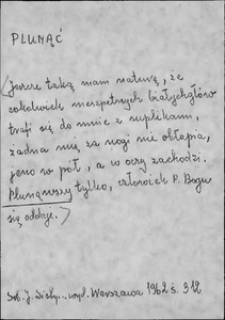 PLUNĄĆ
(Jeszcze taką mam naturę, że
cokolwiek nieszpetnych białychgłów
trafi się do mnie z suplikami,
żadna mię za nogi nie obłapia,
jeno w pół, a w oczy zachodzi.
Plunąwszy tylko, człowiek P. Bogu
się oddaje.)
Warszawa 1962 s. 312